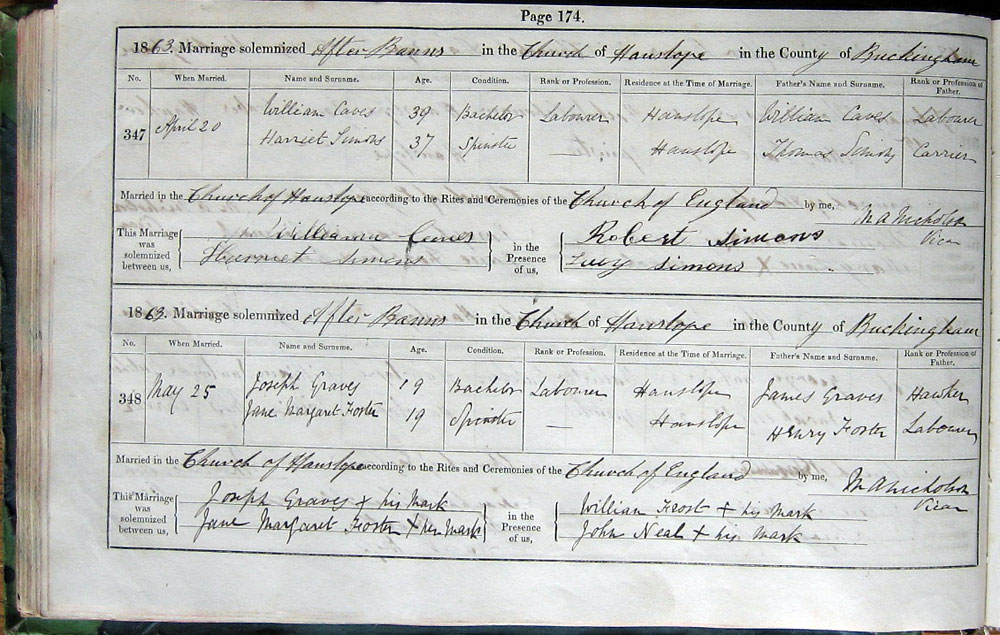 Page 174.
1863. Marriage solemnized After Banns in the Church of Hanslope in the County of Buckingham
No. When Married. Name and Surname. Age. Condition. Rank or Profession. Residence at the Time of Marriage. Father's Name and Surname. Rank or Profession of Father.
347 April 20 William Caves 39 Bachelor Labourer Hanslope William Caves Labourer
Harriet Simons 37 Spinster — Hanslope Thomas Simons Carrier
Married in the Church of Hanslope according to the Rites and Ceremonies of the Church of England by me, M A Nicholson
Vicar
This Marriage was solemnized between us, William Caves in the Presence of us, Robert Simons
Harriet Simons Lucy Simons
1863. Marriage solemnized After Banns in the Church of Hanslope in the County of Buckingham
No. When Married. Name and Surname. Age. Condition. Rank or Profession. Residence at the Time of Marriage. Father's Name and Surname. Rank or Profession of Father.
348 May 25 Joseph Graves 19 Bachelor Labourer Hanslope James Graves Hawker
Jane Margaret Foster 19 Spinster — Hanslope Henry Foster Labourer
Married in the Church of Hanslope according to the Rites and Ceremonies of the Church of England by me, M A Nicholson
Vicar
This Marriage was solemnized between us, Joseph Graves + his Mark in the Presence of us, William Frost + his Mark
Jane Margaret Foster + her Mark John Neal + his Mark